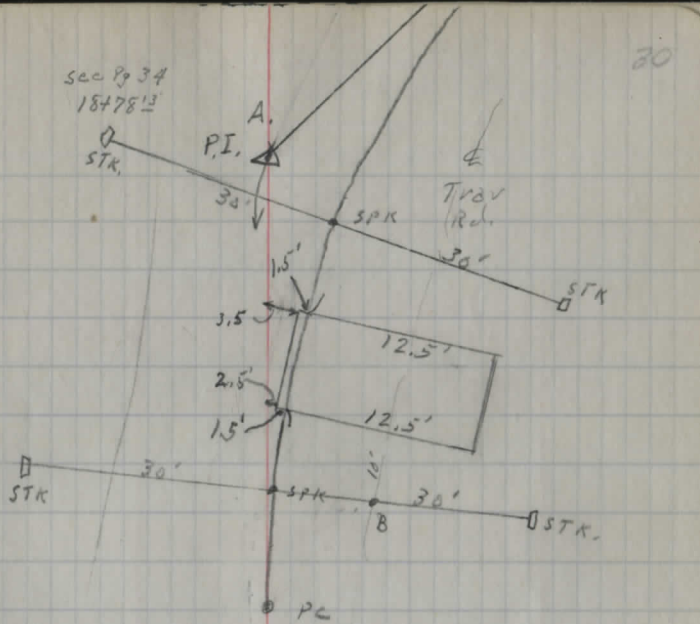 30
See Pg 34
18+78 13
A.
P.I.
STK.
30'
℄
Trav
Rd.
SPK
30'
STK
1.5'
3.5
12.5'
2.5'
1.5'
12.5'
30'
STK
SPK
10'
30'
B
STK.
PC